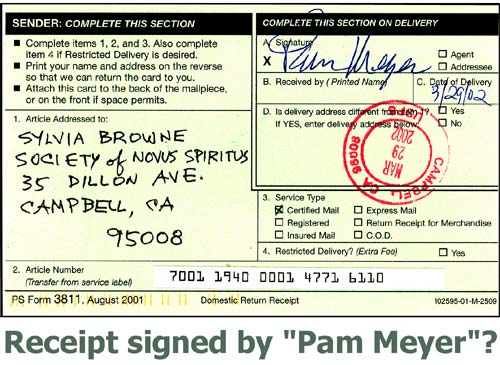 SENDER: COMPLETE THIS SECTION
■ Complete items 1, 2, and 3. Also complete
item 4 if Restricted Delivery is desired.
■ Print your name and address on the reverse
so that we can return the card to you.
■ Attach this card to the back of the mailpiece,
or on the front if space permits.
1. Article Addressed to:
SYLVIA BROWNE
SOCIETY of NOVUS SPIRITUS
35 DILLON AVE.
CAMPBELL, CA
95008
2. Article Number
(Transfer from service label)
7001 1940 0001 4771 6110
COMPLETE THIS SECTION ON DELIVERY
A. Signature
X Pam Meyer
☐ Agent
☐ Addressee
B. Received by (Printed Name)
C. Date of Delivery
3/29/02
D. Is delivery address different from item 1?
☐ Yes
If YES, enter delivery address below:
☐ No
CAMPBELL CA
95008
MAR
29
2002
3. Service Type
☒ Certified Mail ☐ Express Mail
☐ Registered ☐ Return Receipt for Merchandise
☐ Insured Mail ☐ C.O.D.
4. Restricted Delivery? (Extra Fee) ☐ Yes
PS Form 3811, August 2001 Domestic Return Receipt 102595-01-M-2509
Receipt signed by "Pam Meyer"?